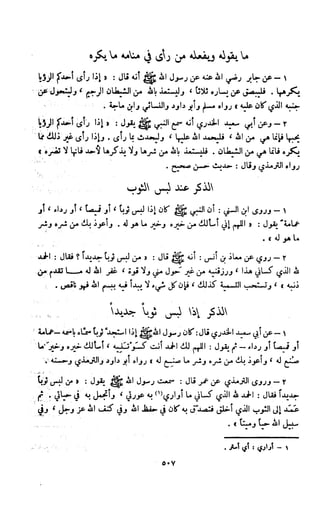 ما يقوله ويفعله من رأى في منامه ما يكره
١ – عن جابر رضي الله عنه عن رسول الله ﷺ أنه قال : « إذا رأى أحدكم الرؤيا
يكرهها . فليبصق عن يساره ثلاثا ، وليستعذ بالله من الشيطان الرجيم ، وليتحول عن
جنبه الذي كان عليه » رواه مسلم وأبو داود والنسائي وابن ماجة .
٢ – وعن أبي سعيد الخدري أنه سمع النبي ﷺ يقول : « إذا رأى أحدكم الرؤيا
يحبها فإنما هي من الله ، فليحمد الله عليها ، وليحدث بما رأى . وإذا رأى غير ذلك مما
يكره فانما هي من الشيطان . فليستعذ بالله من شرها ولا يذكرها لأحد فانها لا تضره »
رواه الترمذي وقال : حديث حسن صحيح .
الذكر عند لبس الثوب
١ – وروى ابن السني : أن النبي ﷺ كان إذا لبس ثوباً ، أو قميصاً ، أو رداء ، أو
عمامة يقول : « اللهم إني أسألك من خيره وخير ما هو له . وأعوذ بك من شره وشر
ما هو له » .
٢ – روي عن معاذ بن أنس : أنه ﷺ قال : « من لبس ثوباً جديداً ؟ فقال : الحمد
لله الذي كساني هذا ، ورزقنيه من غير حول مني ولا قوة ، غفر الله له ما تقدم من
ذنبه » ، وتستحب التسمية كذلك ، فإن كل شيء لا يبدأ فيه ببسم الله فهو ناقص .
الذكر إذا لبس ثوباً جديداً
١ – عن أبي سعيد الخدري قال : كان رسول الله ﷺ إذا استجدّ ثوباً سمّاه باسمه – عمامة
أو قميصاً أو رداء – ثم يقول : اللهم لك الحمد أنت كسوتنيه ، أسألك خيره وخير ما
صنع له ، وأعوذ بك من شره وشر ما صنع له » رواه أبو داود والترمذي وحسنه .
٢ – وروى الترمذي عن عمر قال : سمعت رسول الله ﷺ يقول : « من لبس ثوباً
جديداً فقال : الحمد لله الذي كساني ما أواري (١) به عورتي ، وأتجمل به في حياتي . ثم
عمد إلى الثوب الذي أخلق فتصدق به كان في حفظ الله وفي كنف الله عز وجل ، وفي
سبيل الله حياً وميتاً » .
١ – أواري : أي أستر .
٥٠٧